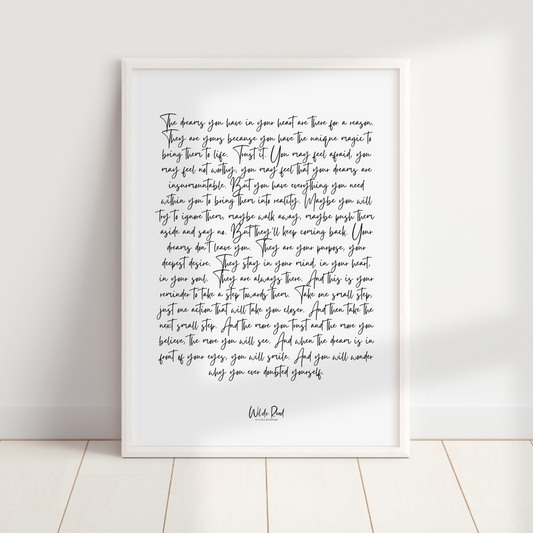 The dreams you have in your heart are there for a reason.
They are yours because you have the unique magic to
bring them to life. Trust it. You may feel afraid, you
may feel not worthy, you may feel that your dreams are
insurmountable. But you have everything you need
within you to bring them into reality. Maybe you will
try to ignore them, maybe walk away, maybe push them
aside and say no. But they'll keep coming back. Your
dreams don't leave you. They are your purpose, your
deepest desire. They stay in your mind, in your heart,
in your soul. They are always there. And this is your
reminder to take a step towards them. Take one small step,
just one action that will take you closer. And then take the
next small step. And the more you trust and the more you
believe, the more you will see. And when the dream is in
front of your eyes, you will smile. And you will wonder
why you ever doubted yourself.
Wilde Road